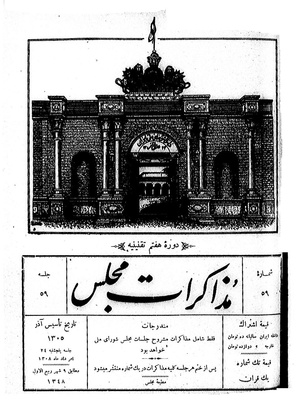 دورهٔ هفتم تقنینیه
شماره
۵۹
مذاکرات مجلس
جلسه
۵۹
قیمة اشتراك
داخله ایران سالیانه ده تومان
خارجه » دوازده تومان
قیمة تك شماره
یك قران
مندرجات
فقط شامل مذاکرات مشروح جلسات مجلس شورای ملی
خواهد بود
پس از ختم هر جلسه کلیه مذاکرات در یك شماره منتشر میشود
مطبعهٔ مجلس
تاریخ تأسیس آذر
۱۳۰۵
جلسه پنجشنبه ۲۴
ماه ۱۳۰۸
مطابق ۹ شهر ربیع الاول
۱۳۴۸